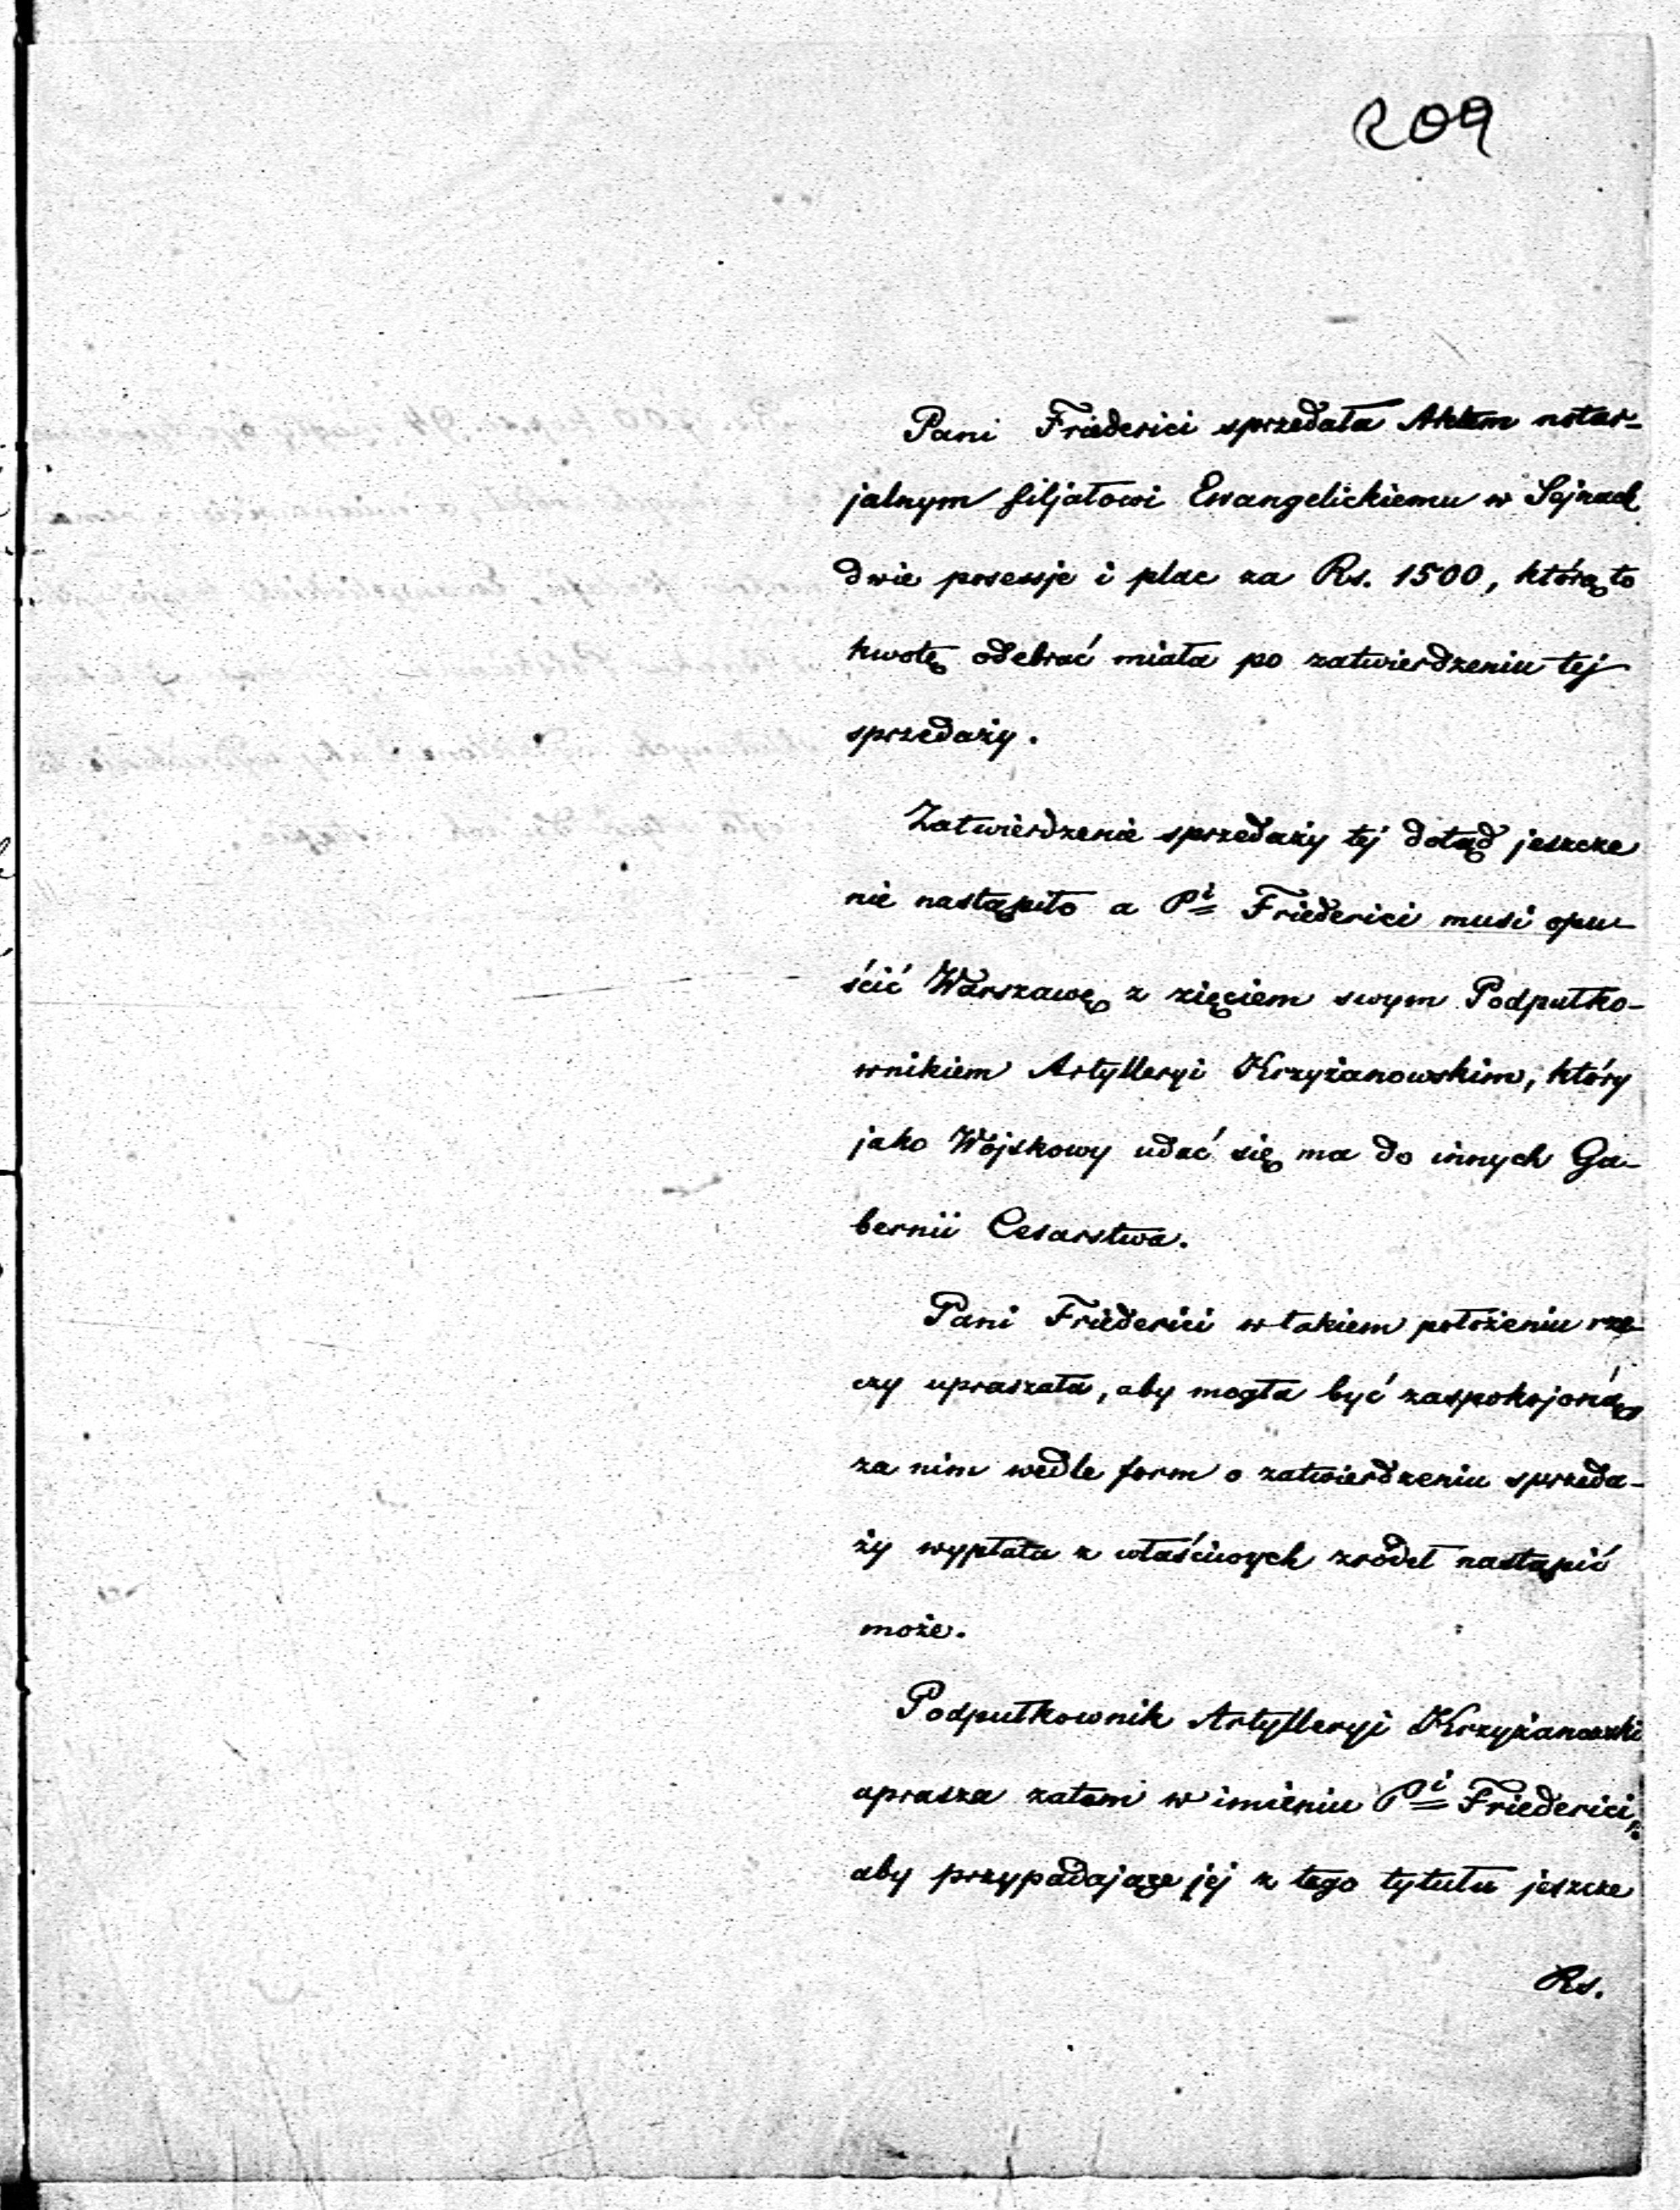 209
Pani Friederici sprzedała Aktem notar-
jalnym filjałowi Ewangelickiemu w Sejnach
dwie posessje i plac za Rs. 1500, którą to
kwotę odebrać miała po zatwierdzeniu tej
sprzedaży.
Zatwierdzenie sprzedaży tej dotąd jeszcze
nie nastąpiło a Pi Friederici musi opu-
ścić Warszawę z zięciem swym Podpułko-
wnikiem Artylleryi Krzyżanowskim, który
jako Wojskowy udać się ma do innych Gu-
bernii Cesarstwa.
Pani Friederici w takiem położeniu rze-
czy upraszała, aby mogła być zaspokojoną
za nim wedle form o zatwierdzeniu sprzeda-
ży wypłata z właściwych źródeł nastąpić
może.
Podpułkownik Artylleryi Krzyżanowski
uprasza zatem w imieniu Pi Friederici,
aby przypadające jej z tego tytułu jeszcze
Rs.